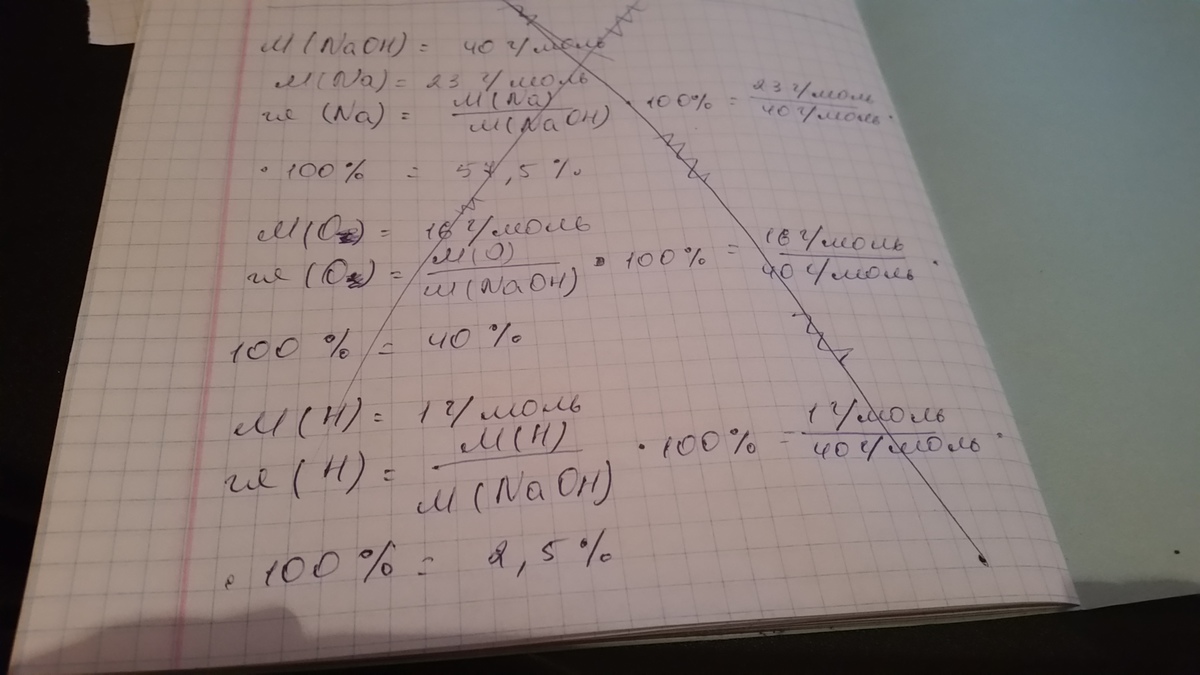 M(NaOH) = 40 г/моль
M(Na) = 23 г/моль
(Na) = M(Na) / M(NaOH) · 100% = 23 г/моль / 40 г/моль ·
· 100% = 57,5%
M(O) = 16 г/моль
(O) = M(O) / M(NaOH) · 100% = 16 г/моль / 40 г/моль ·
100% = 40%
M(H) = 1 г/моль
(H) = M(H) / M(NaOH) · 100% = 1 г/моль / 40 г/моль ·
· 100% = 2,5%